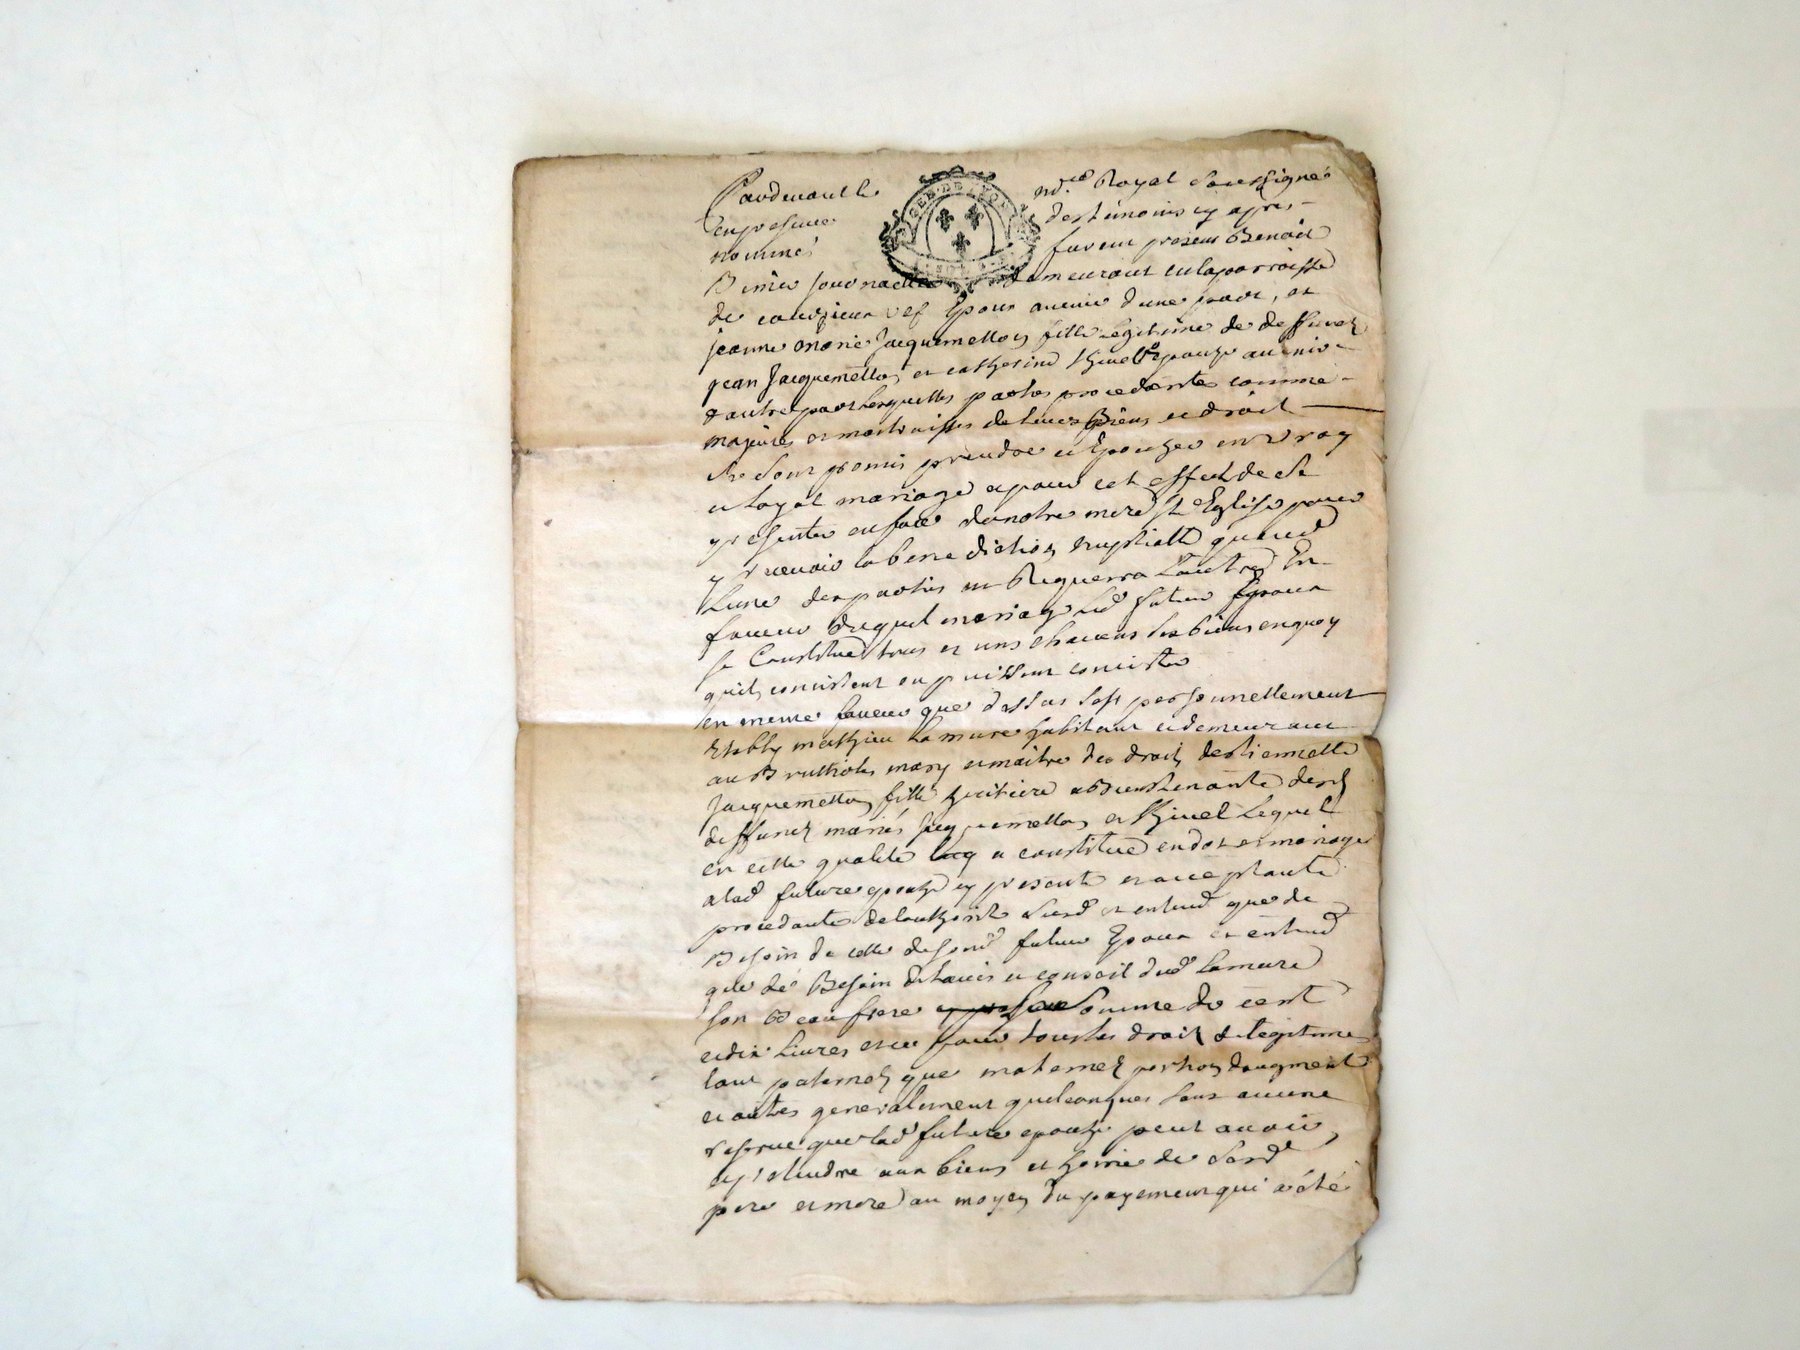 Pardevant le no.re Royal soussigné
en presence des temoins cy apres
nommés furent presens Benoist
journallier demeurant en la parroisse
de epoux avenir d'une part, et
jeanne marie Jacquemetton fille legitime de deffunct
jean Jacquemetton et catherine Thivel epouze avenir
d'autre part lesquelles parties procedantes comme
majeures et maitraisses de leurs Biens et droits
se sont promis prendre et Epouzer en vray
et loyal mariage et pour cet effet de se
presenter en face de notre mere Ste Eglise pour
y recevoir la benediction nuptialle quand
l'une des parties en Requerra l'autre En
faveur duquel mariage led futur Epoux
se Constitue tous et uns chacuns ses biens en quoy
quils consistent ou puissent consister
en meme faveur que dessus s'est personnellement
Etably mathieu Lamure habitant et demeurant
au mary et maitre des droits destiennette
Jacquemetton fille heritiere desd
deffuncts mariés Jacquemetton et Thivel Lequel
en cette qualité a constitué en dot et mariage
a lad future epouze cy presente et acceptante
procedante de lauthorité susd et entend que de
Besoin de celle de sond futur Epoux et entend
que de Besoin de l'avis et conseil dud Lamure
son Beaufrere Somme de cent
et dix Livres et ce pour tous les droits de legitime
tant paternels que maternels portion d'augment
et autres generalement quelconques sans aucune
reserve que lad future epouze peut avoir
et pretendre aux biens et hoirie de sesd
pere et mere au moyen du payement qui a été
GEN. DE LYON